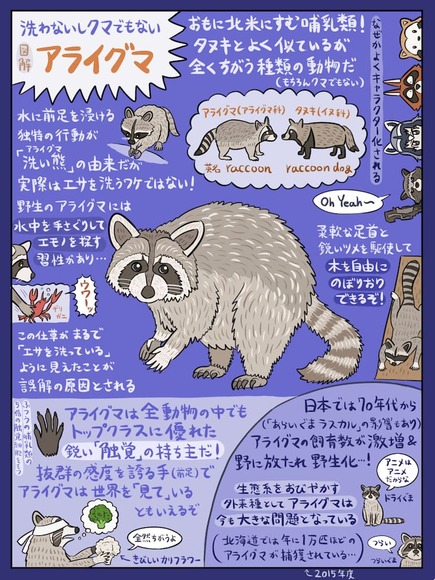 洗わないしクマでもない
図解
アライグマ
おもに北米にすむ哺乳類!
タヌキとよく似ているが
全くちがう種類の動物だ
(もちろんクマでもない)
なぜかよくキャラクター化される
水に前足を浸ける
独特の行動が
アライグマ
「洗い熊」の由来だが
実際はエサを洗うワケではない!
アライグマ(アライグマ科)
タヌキ(イヌ科)
英名 raccoon
raccoon dog
野生のアライグマには
水中を手さぐりして
エモノを探す
習性があり…
Oh Yeah〜
柔軟な足首と
鋭いツメを駆使して
木を自由に
のぼりおり
できるぞ!
ウワーッ
ザリガニ
この仕草がまるで
「エサを洗っている」
ように見えたことが
誤解の原因とされる
アライグマは全動物の中でも
トップクラスに優れた
鋭い「触覚」の持ち主だ!
抜群の感度を誇る手(前足)で
アライグマは世界を「見て」いる
ともいえるぞ
全然ちがうよ
きびしいカリフラワー
日本では70年代から
(「あらいぐまラスカル」の影響もあり)
アライグマの飼育数が激増&
野に放たれ野生化…!
アニメは
アニメ
だからな
ドライぐま
生態系をおびやかす
外来種としてアライグマは
今も大きな問題となっている
(北海道では年に1万匹ほどの
アライグマが捕獲されている…)
つらい
つらいぐま
2015年度